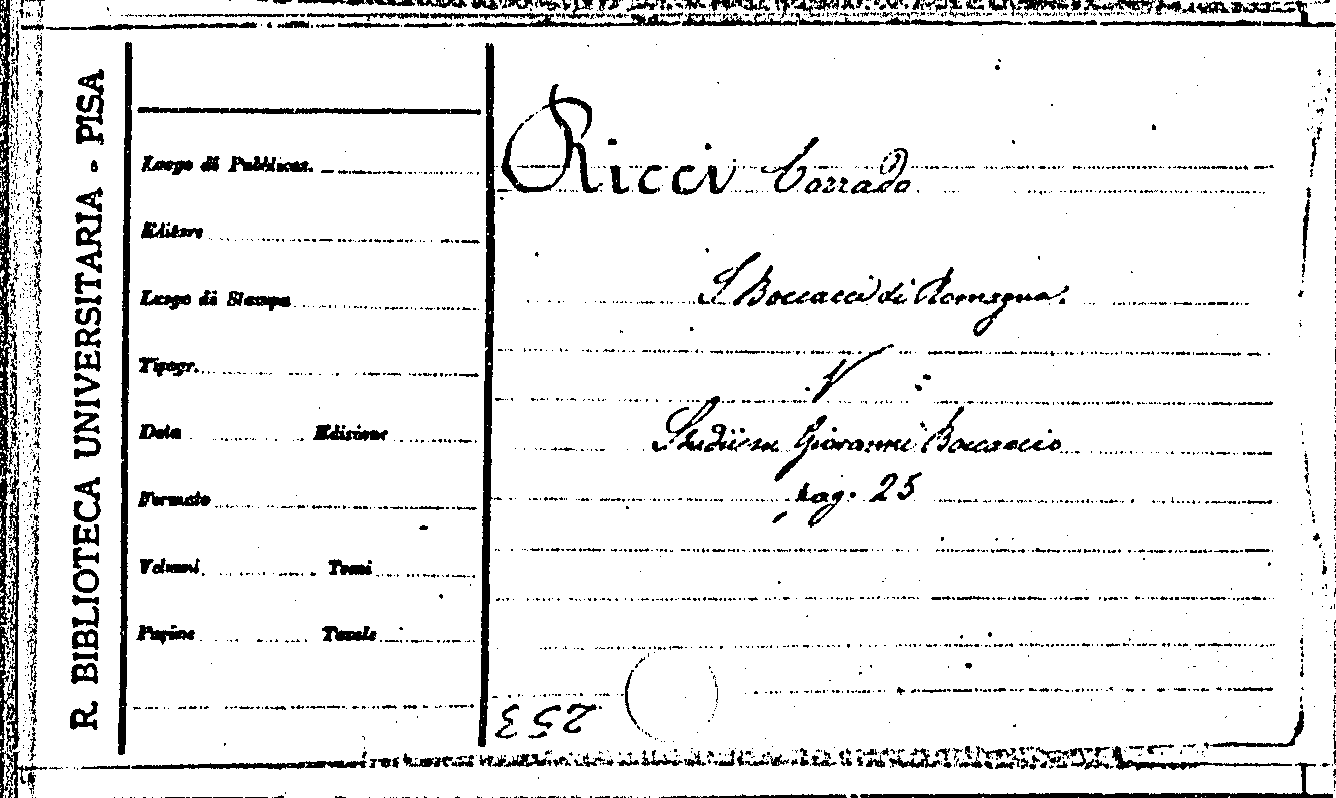 R. BIBLIOTECA UNIVERSITARIA - PISA
Luogo di Pubblicaz.
Editore
Luogo di Stampa
Tipogr.
Data Edizione
Formato
Volumi Tomi
Pagine Tavole
Ricci Corrado
I Boccacci di Romagna.
V :
Studii su Giovanni Boccaccio
pag. 25
253